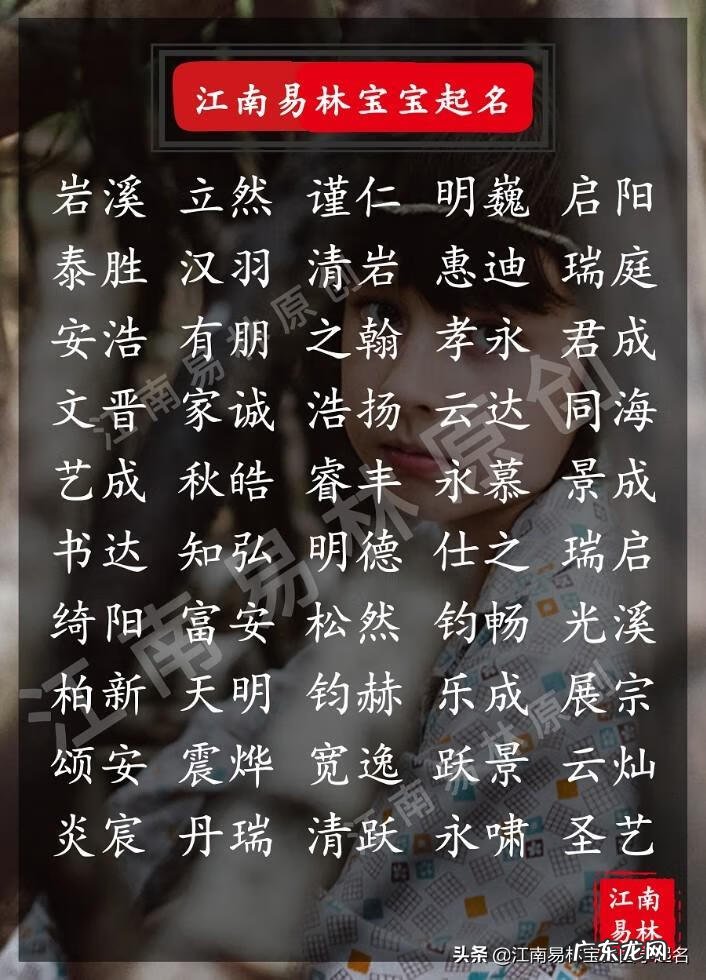 江南易林宝宝起名
岩溪 立然 谨仁 明巍 启阳
泰胜 汉羽 清岩 惠迪 瑞庭
安浩 有朋 之翰 孝永 君成
文晋 家诚 浩扬 云达 同海
艺成 秋皓 睿丰 永慕 景成
书达 知弘 明德 仕之 瑞启
绮阳 富安 松然 钧畅 光溪
柏新 天明 钧赫 乐成 展宗
颂安 震烨 宽逸 跃景 云灿
炎宸 丹瑞 清跃 永啸 圣艺
江南易林原创
江南易林原创
江南易林原创
江南
易林
头条 @江南易林宝宝起名
广东龙网